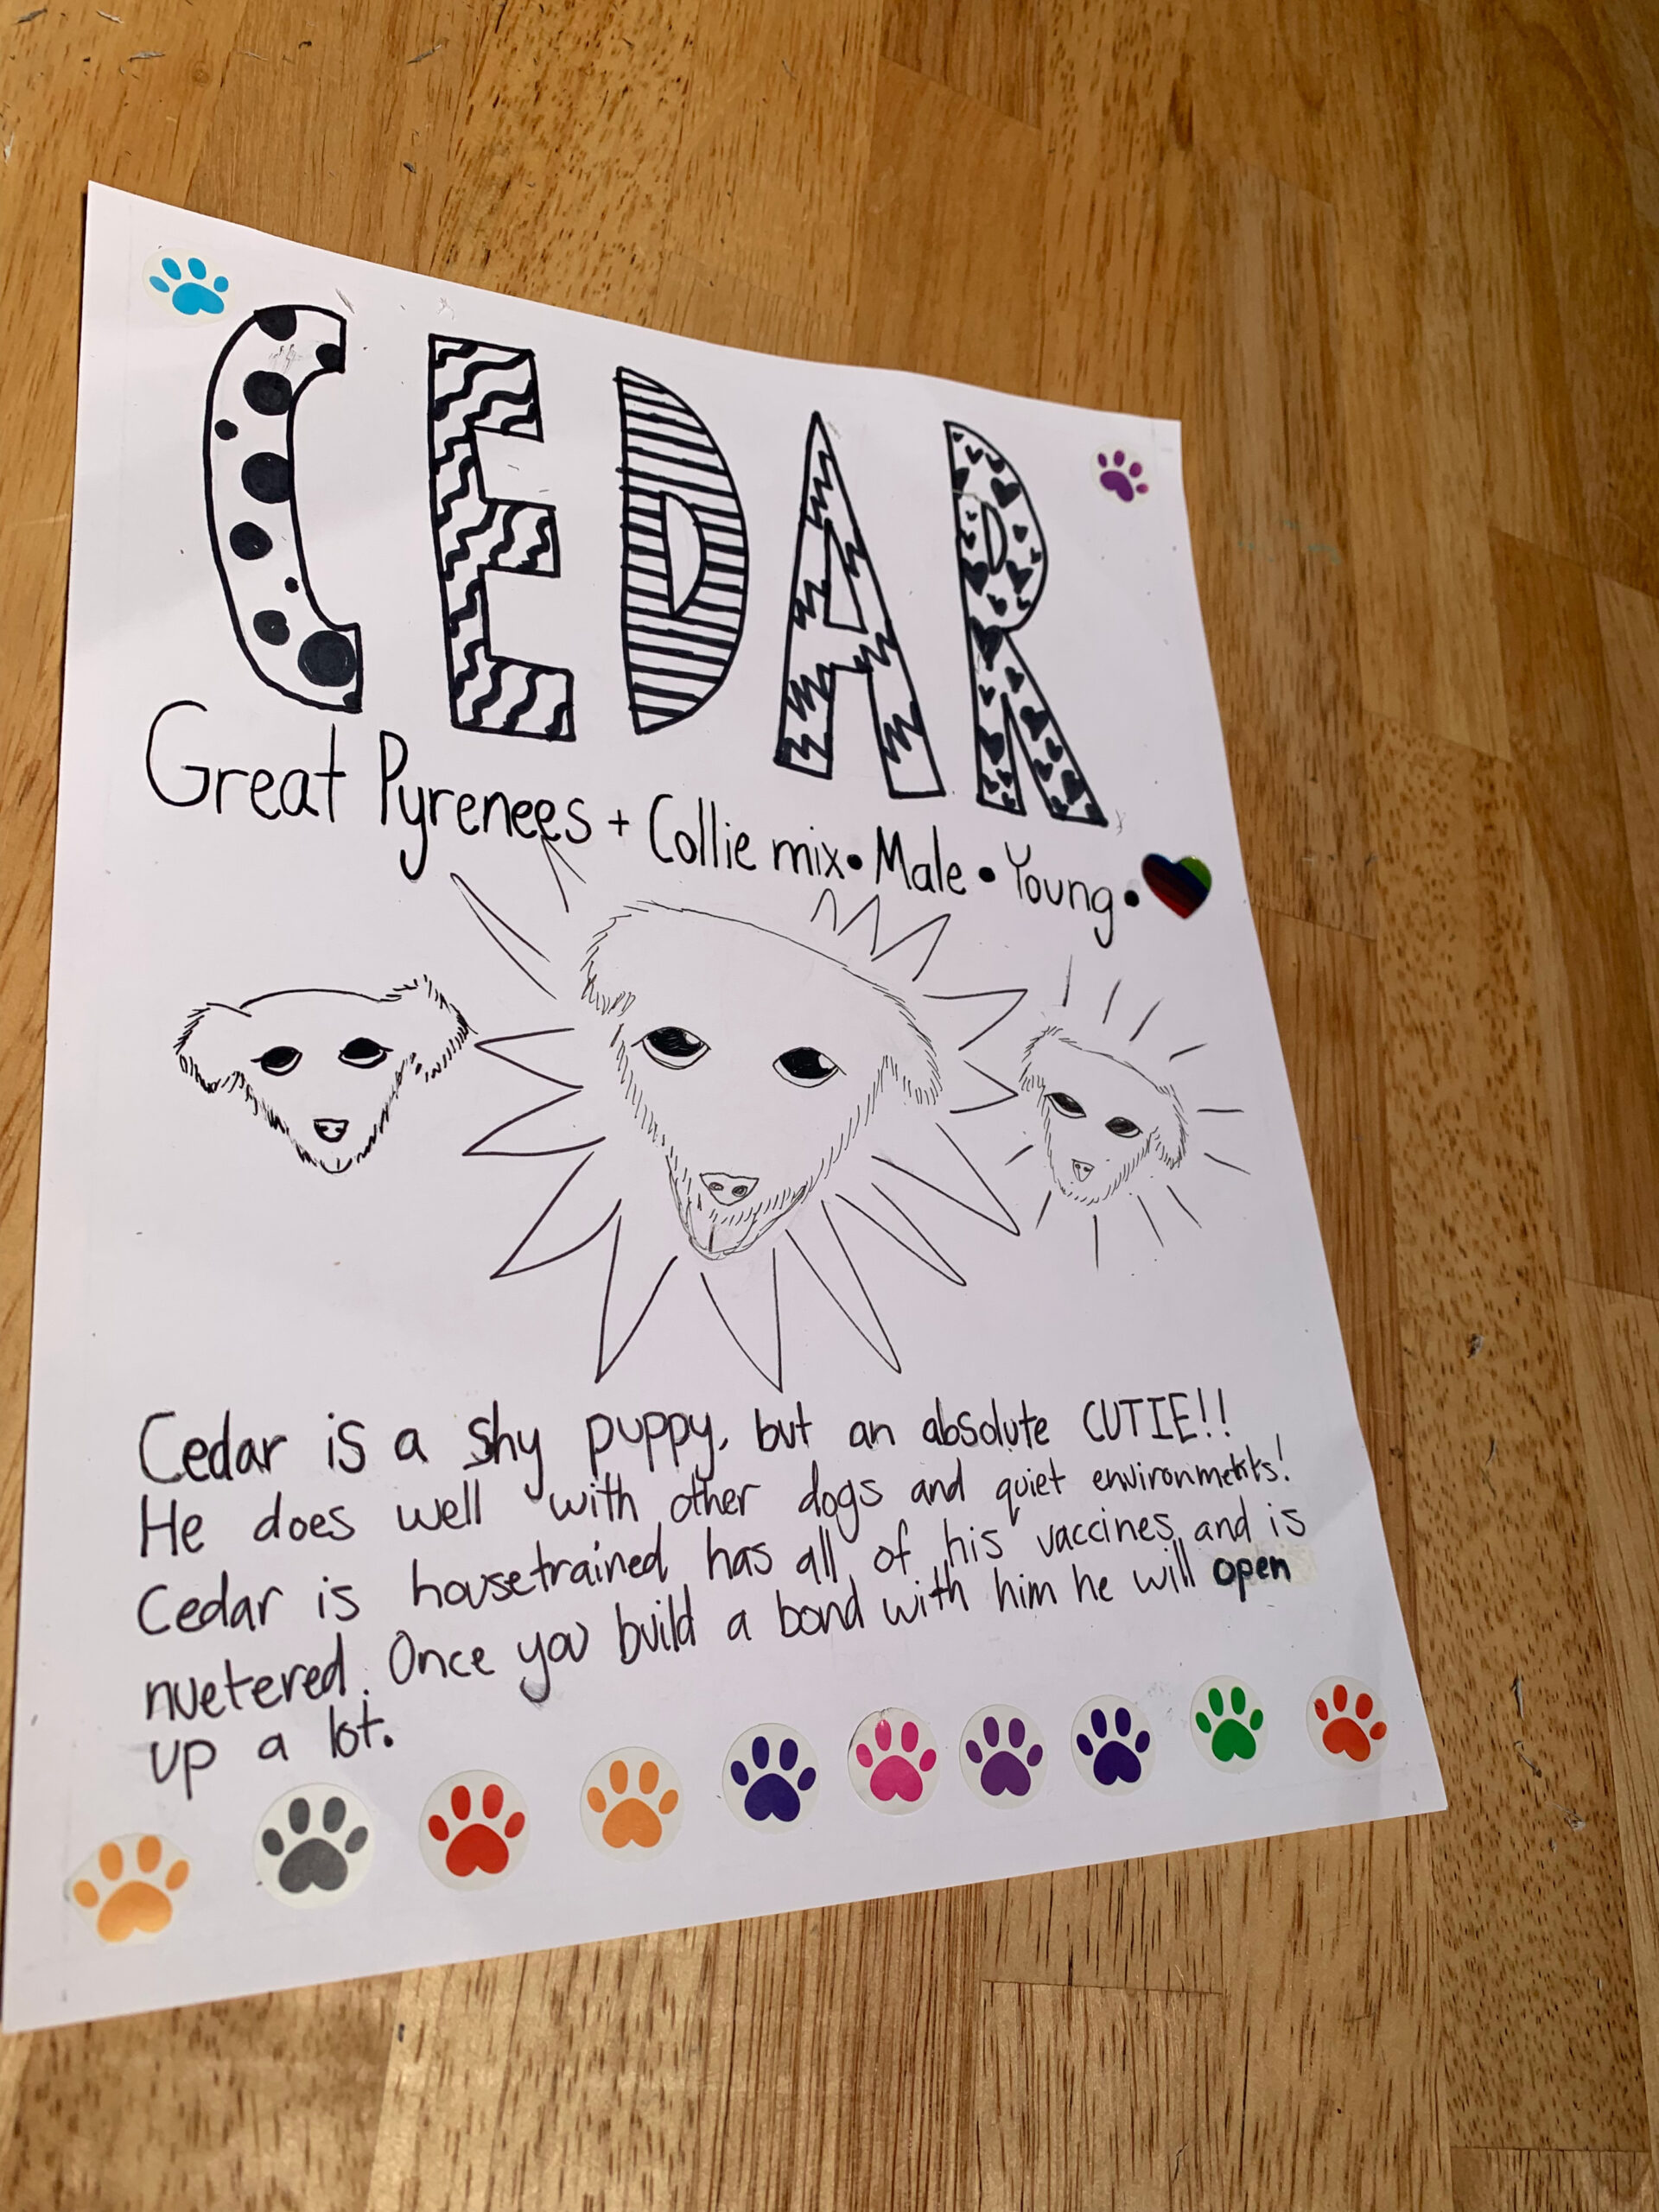 CEDAR
Great Pyrenees + Collie mix • Male • Young •
Cedar is a shy puppy, but an absolute CUTIE!!
He does well with other dogs and quiet environments!
Cedar is housetrained has all of his vaccines, and is
nuetered. Once you build a bond with him he will open
up a lot.